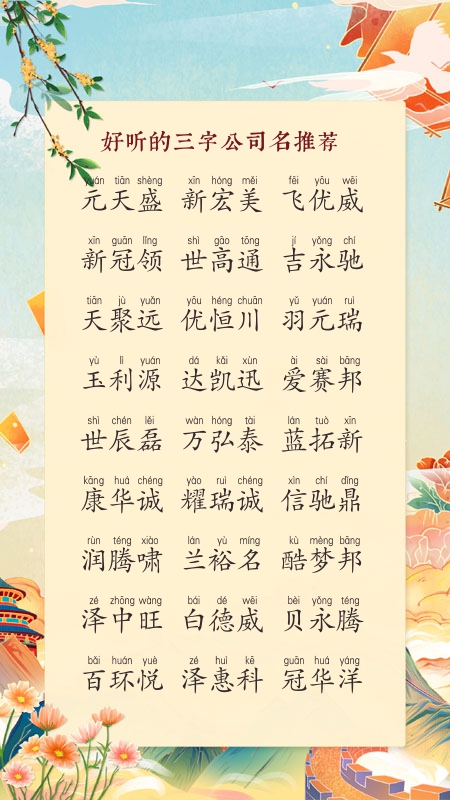 好听的三字公司名推荐
yuán tiān shèng xīn hóng měi fēi yōu wēi
元天盛 新宏美 飞优威
xīn guān lǐng shì gāo tōng jí yǒng chí
新冠领 世高通 吉永驰
tiān jù yuǎn yōu héng chuān yǔ yuán ruì
天聚远 优恒川 羽元瑞
yù lì yuán dá kǎi xùn ài sài bāng
玉利源 达凯迅 爱赛邦
shì chén lěi wàn hóng tài lán tuò xīn
世辰磊 万弘泰 蓝拓新
kāng huá chéng yào ruì chéng xìn chí dǐng
康华诚 耀瑞诚 信驰鼎
rùn téng xiào lán yù míng kù mèng bāng
润腾啸 兰裕名 酷梦邦
zé zhōng wàng bái dé wēi bèi yǒng téng
泽中旺 白德威 贝永腾
bǎi huán yuè zé huì kē guān huá yáng
百环悦 泽惠科 冠华洋